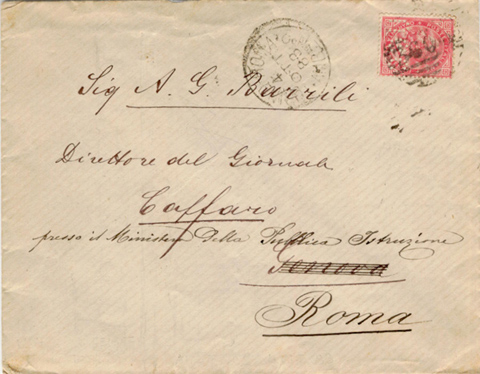 Sig A. G. Barrili
Direttore del Giornale
Caffaro
presso il Ministero Della Pubblica Istruzione
Genova
Roma